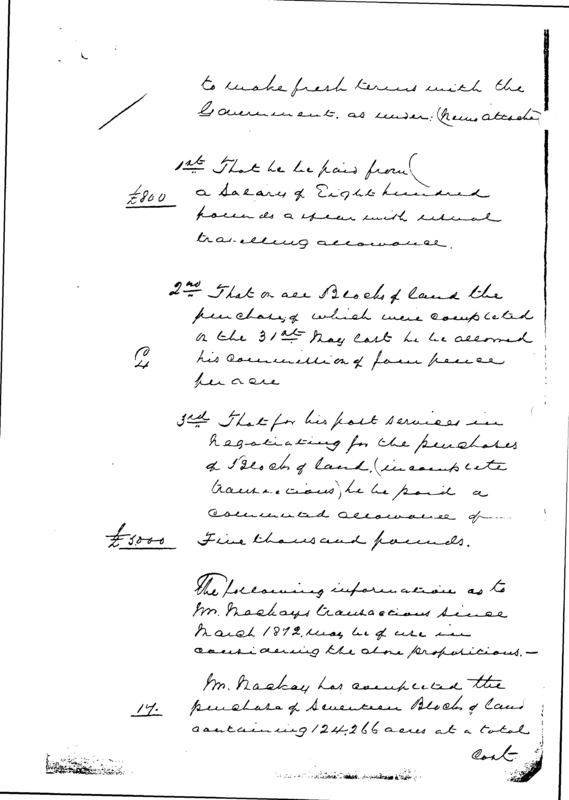 to make fresh terms with the
Government. as under: (News attached)
1st That he be paid from (
£800
a Salary of Eight hundred
pounds a year with usual
travelling allowance.
2nd That on all Blocks of land the
purchase of which were completed
on the 31st May last he be allowed
4
his commission of four pence
per acre
3rd That for his past services in
negotiating for the purchases
of Blocks of land, (incomplete
transactions) he be paid a
commuted allowance of
£5000
Five thousand pounds.
The following information as to
Mr. Mackays transactions since
March 1872. may be of use in
considering the above propositions. —
Mr. Mackay has completed the
17.
purchase of Seventeen Blocks of land
containing 124,266 acres at a total
cost